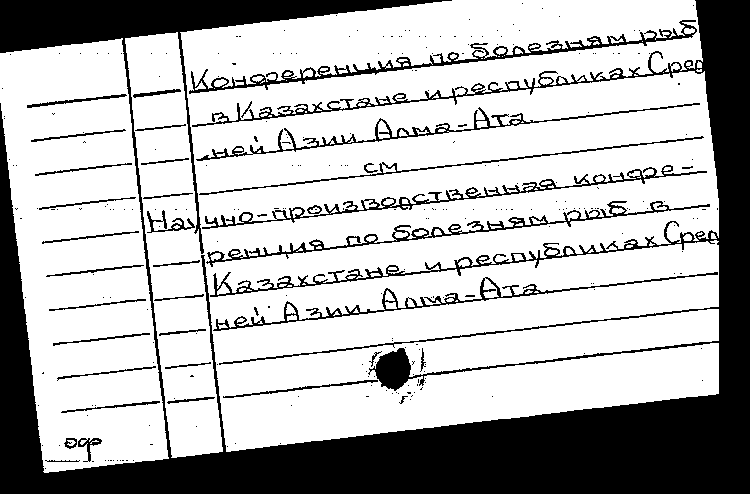 Конференция по болезням рыб
в Казахстане и республиках Сред
ней Азии. Алма-Ата.
см
Научно-производственная конфе-
ренция по болезням рыб в
Казахстане и республиках Сред
ней Азии. Алма-Ата.
оф